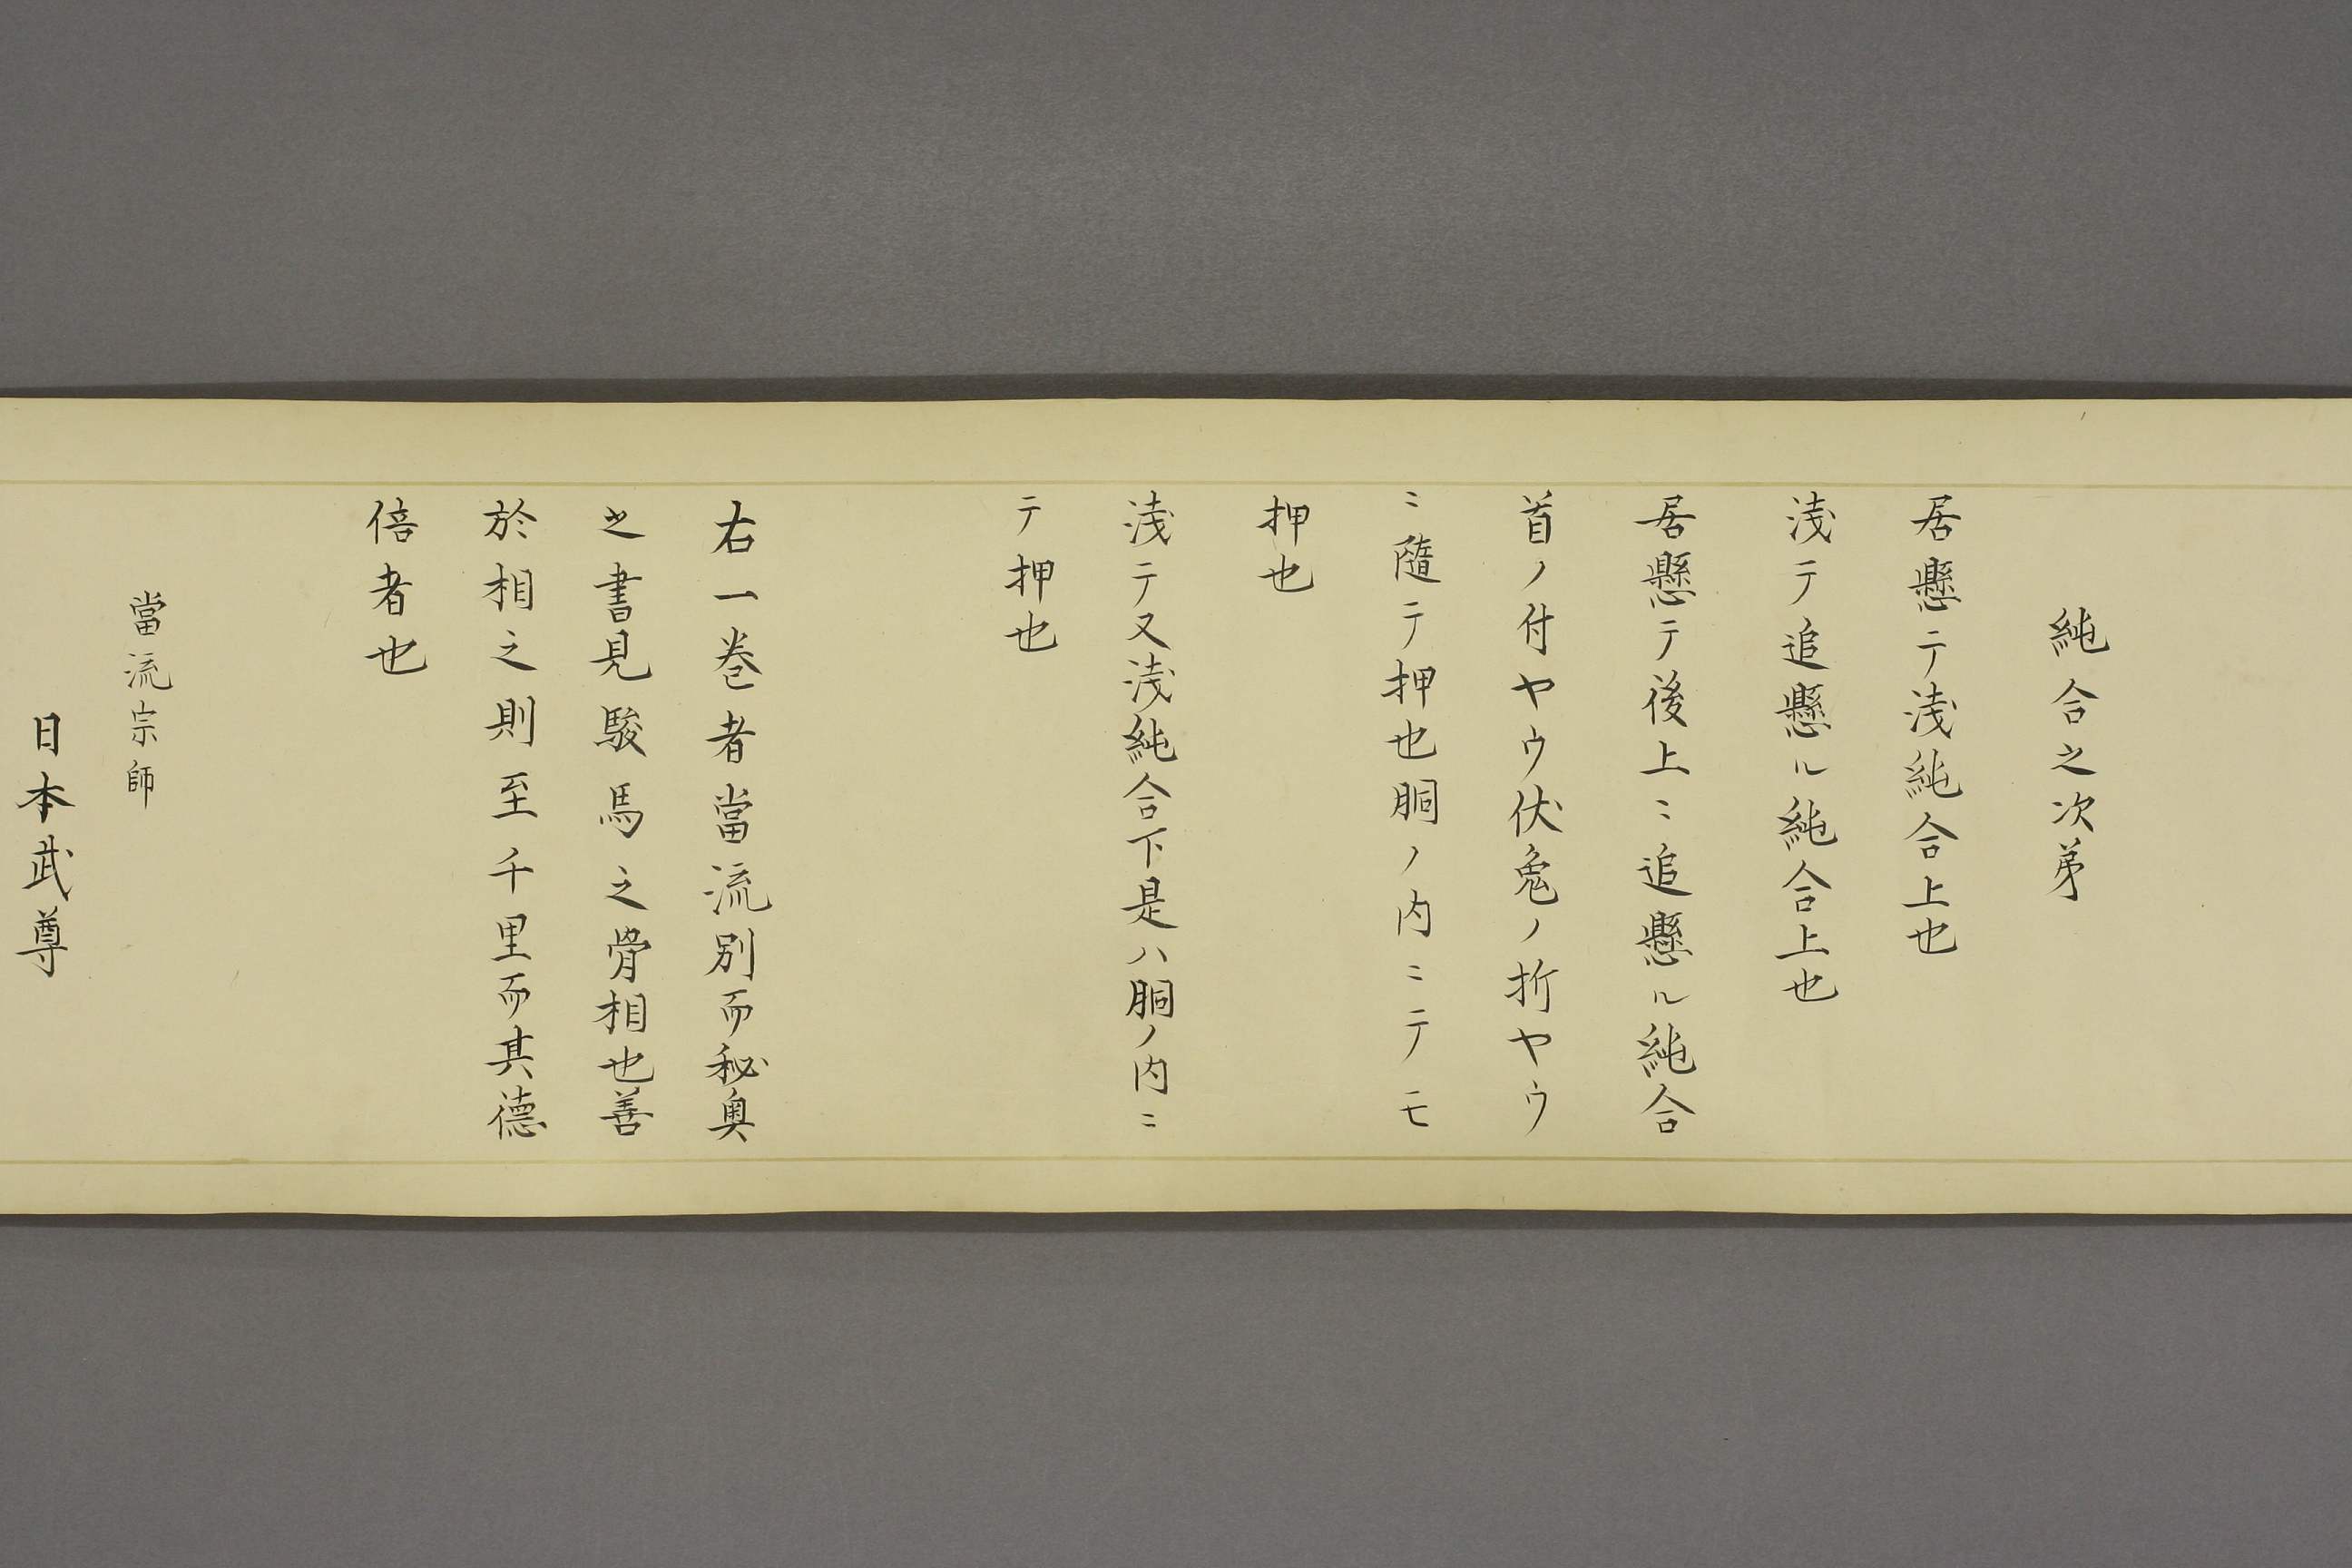 純合之次第
居懸テ淺純合上也
淺テ追懸ル純合上也
居懸テ後上ニ追懸ル純合
首ノ付ヤウ伏兔ノ折ヤウ
ニ隨テ押也胴ノ内ニテモ
押也
淺テ又淺純合下是ハ胴ノ内ニ
テ押也
右一巻者當流別而秘奥
之書見駿馬之骨相也善
於相之則至千里而其德
倍者也
當流宗師
日本武尊